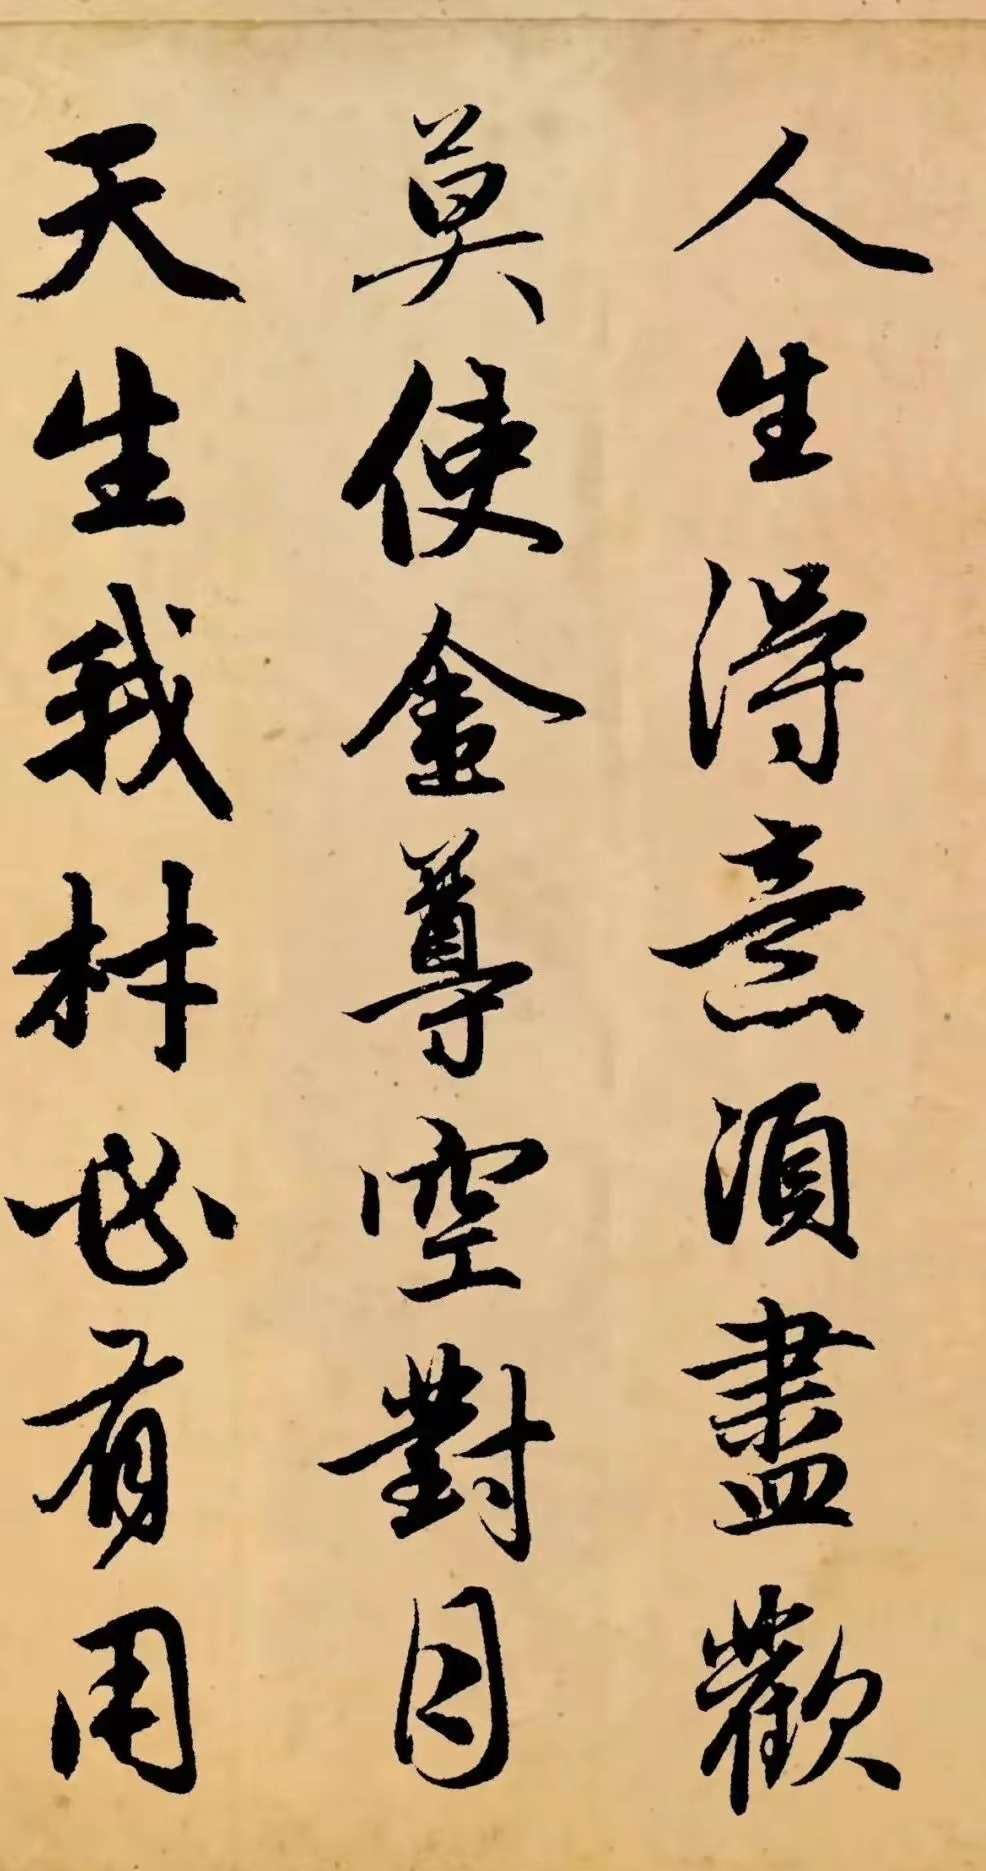 人生得意須盡歡
莫使金尊空對月
天生我材必有用